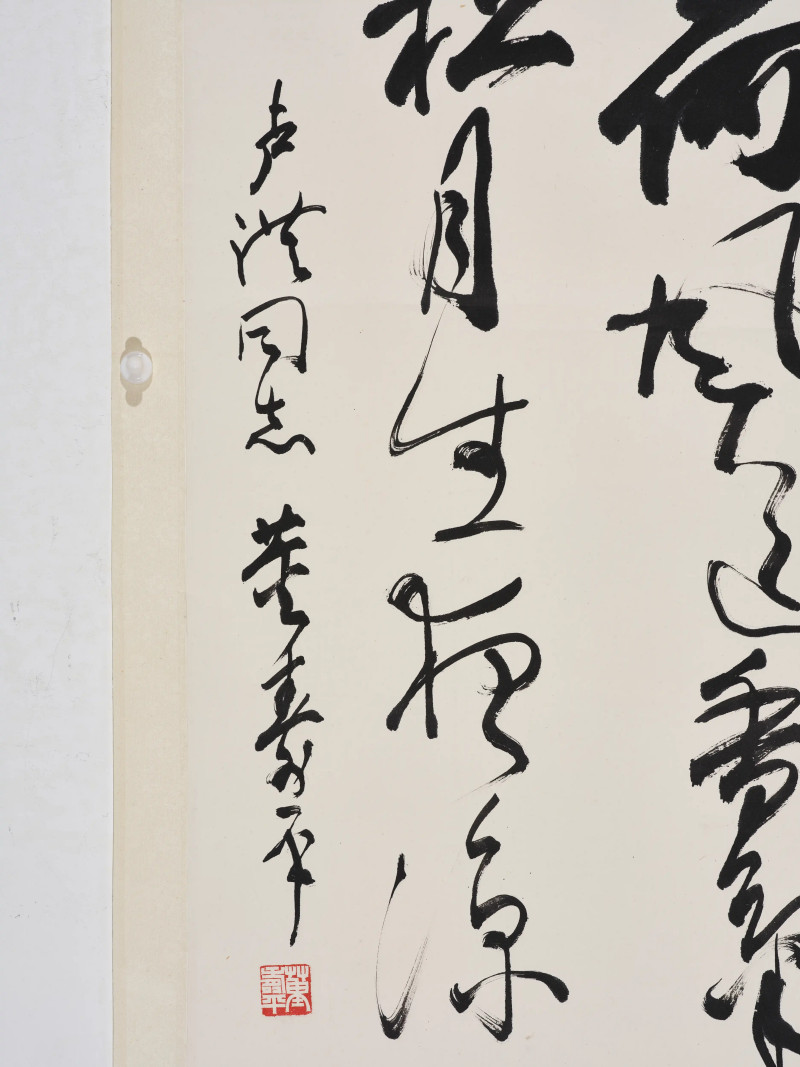 荷风送香氣
松月生夜涼
卢洪同志 董寿平
董壽平